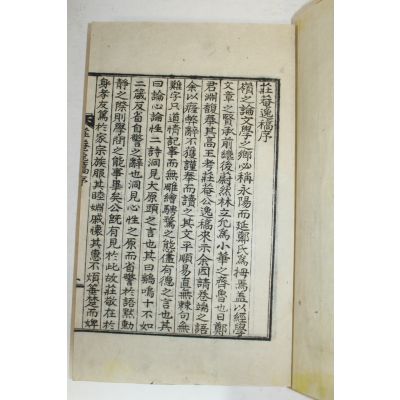 莊菴逸稿序
嶺之論文學之鄉必稱永陽而延鄭氏爲拇焉盖以經學
文章之賢承前繼後蔚然林立允爲小華之齊魯也日鄭
君淵韻奉其高王考莊菴公逸稿來示余因請卷端之語
余以癃弊辭不獲謹奉而讀之其文平順易直無棘句無
難字只道情記事而無雕繪騁驁之態儘有德之言也其
曰論心性二詩洞見大原頭之言也其曰鷄鳴十不如
二箴及省自警之辭也洞見心性之原而省警於語默動
靜之際則學問之能事畢矣公旣有見於此故莊敬在於
身孝友篤於家宗族服其睦婣戚懷其惠不煩箠楚而婢
莊菴逸稿序